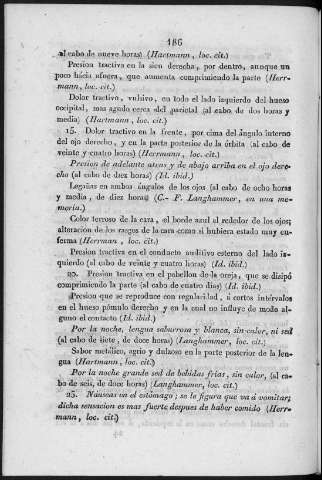 186
al cabo de nueve horas) (Hartmann, loc. cit.)
Presion tractiva en la sien derecha, por dentro, aunque un
poco hácia afuera, que aumenta comprimiendo la parte (Herr-
mann, loc. cit.)
Dolor tractivo, vulsivo, en todo el lado izquierdo del hueso
occipital, mas agudo cerca del parietal (al cabo de dos horas y
media) (Hartmann, loc. cit.)
15. Dolor tractivo en la frente, por cima del ángulo interno
del ojo derecho, y en la parte posterior de la órbita (al cabo de
veinte y cuatro horas) (Herrmann, loc. cit.)
Presion de adelante atras, y de abajo arriba en el ojo dere-
cho (al cabo de diez horas) (Id. ibid.)
Legañas en ambos ángulos de los ojos (al cabo de ocho horas
y media, de diez horas) (C.- F. Langhammer, en una me-
moria.)
Color terroso de la cara, el borde azul al rededor de los ojos;
alteracion de los rasgos de la cara como si hubiera estado muy en-
ferma (Herrman, loc. cit.)
Presion tractiva en el conducto auditivo esterno del lado iz-
quierdo (al cabo de veinte y cuatro horas) (Id. ibid.)
20. Presion tractiva en el pabellon de la oreja, que se disipó
comprimiendo la parte (al cabo de cuatro dias) (Id. ibid.)
Presion que se reproduce con regularidad, á cortos intérvalos
en el hueso pómulo derecho y en la cual no influye de modo al-
guno el contacto (Id. ibid.)
Por la noche, lengua saburrosa y blanca, sin calor, ni sed
(al cabo de siete, de doce horas) (Langhammer, loc. cit.)
Sabor metálico, agrio y dulzaso en la parte posterior de la len-
gua (Hartmann, loc. cit.)
Por la noche grande sed de bebidas frias, sin calor, (al ca-
bo de seis, de doce horas) (Langhammer, loc. cit.)
25. Nauseas en el estómago; se le figura que va á vomitar;
dicha sensacion es mas fuerte despues de haber comido (Herr-
mann, loc. cit.)